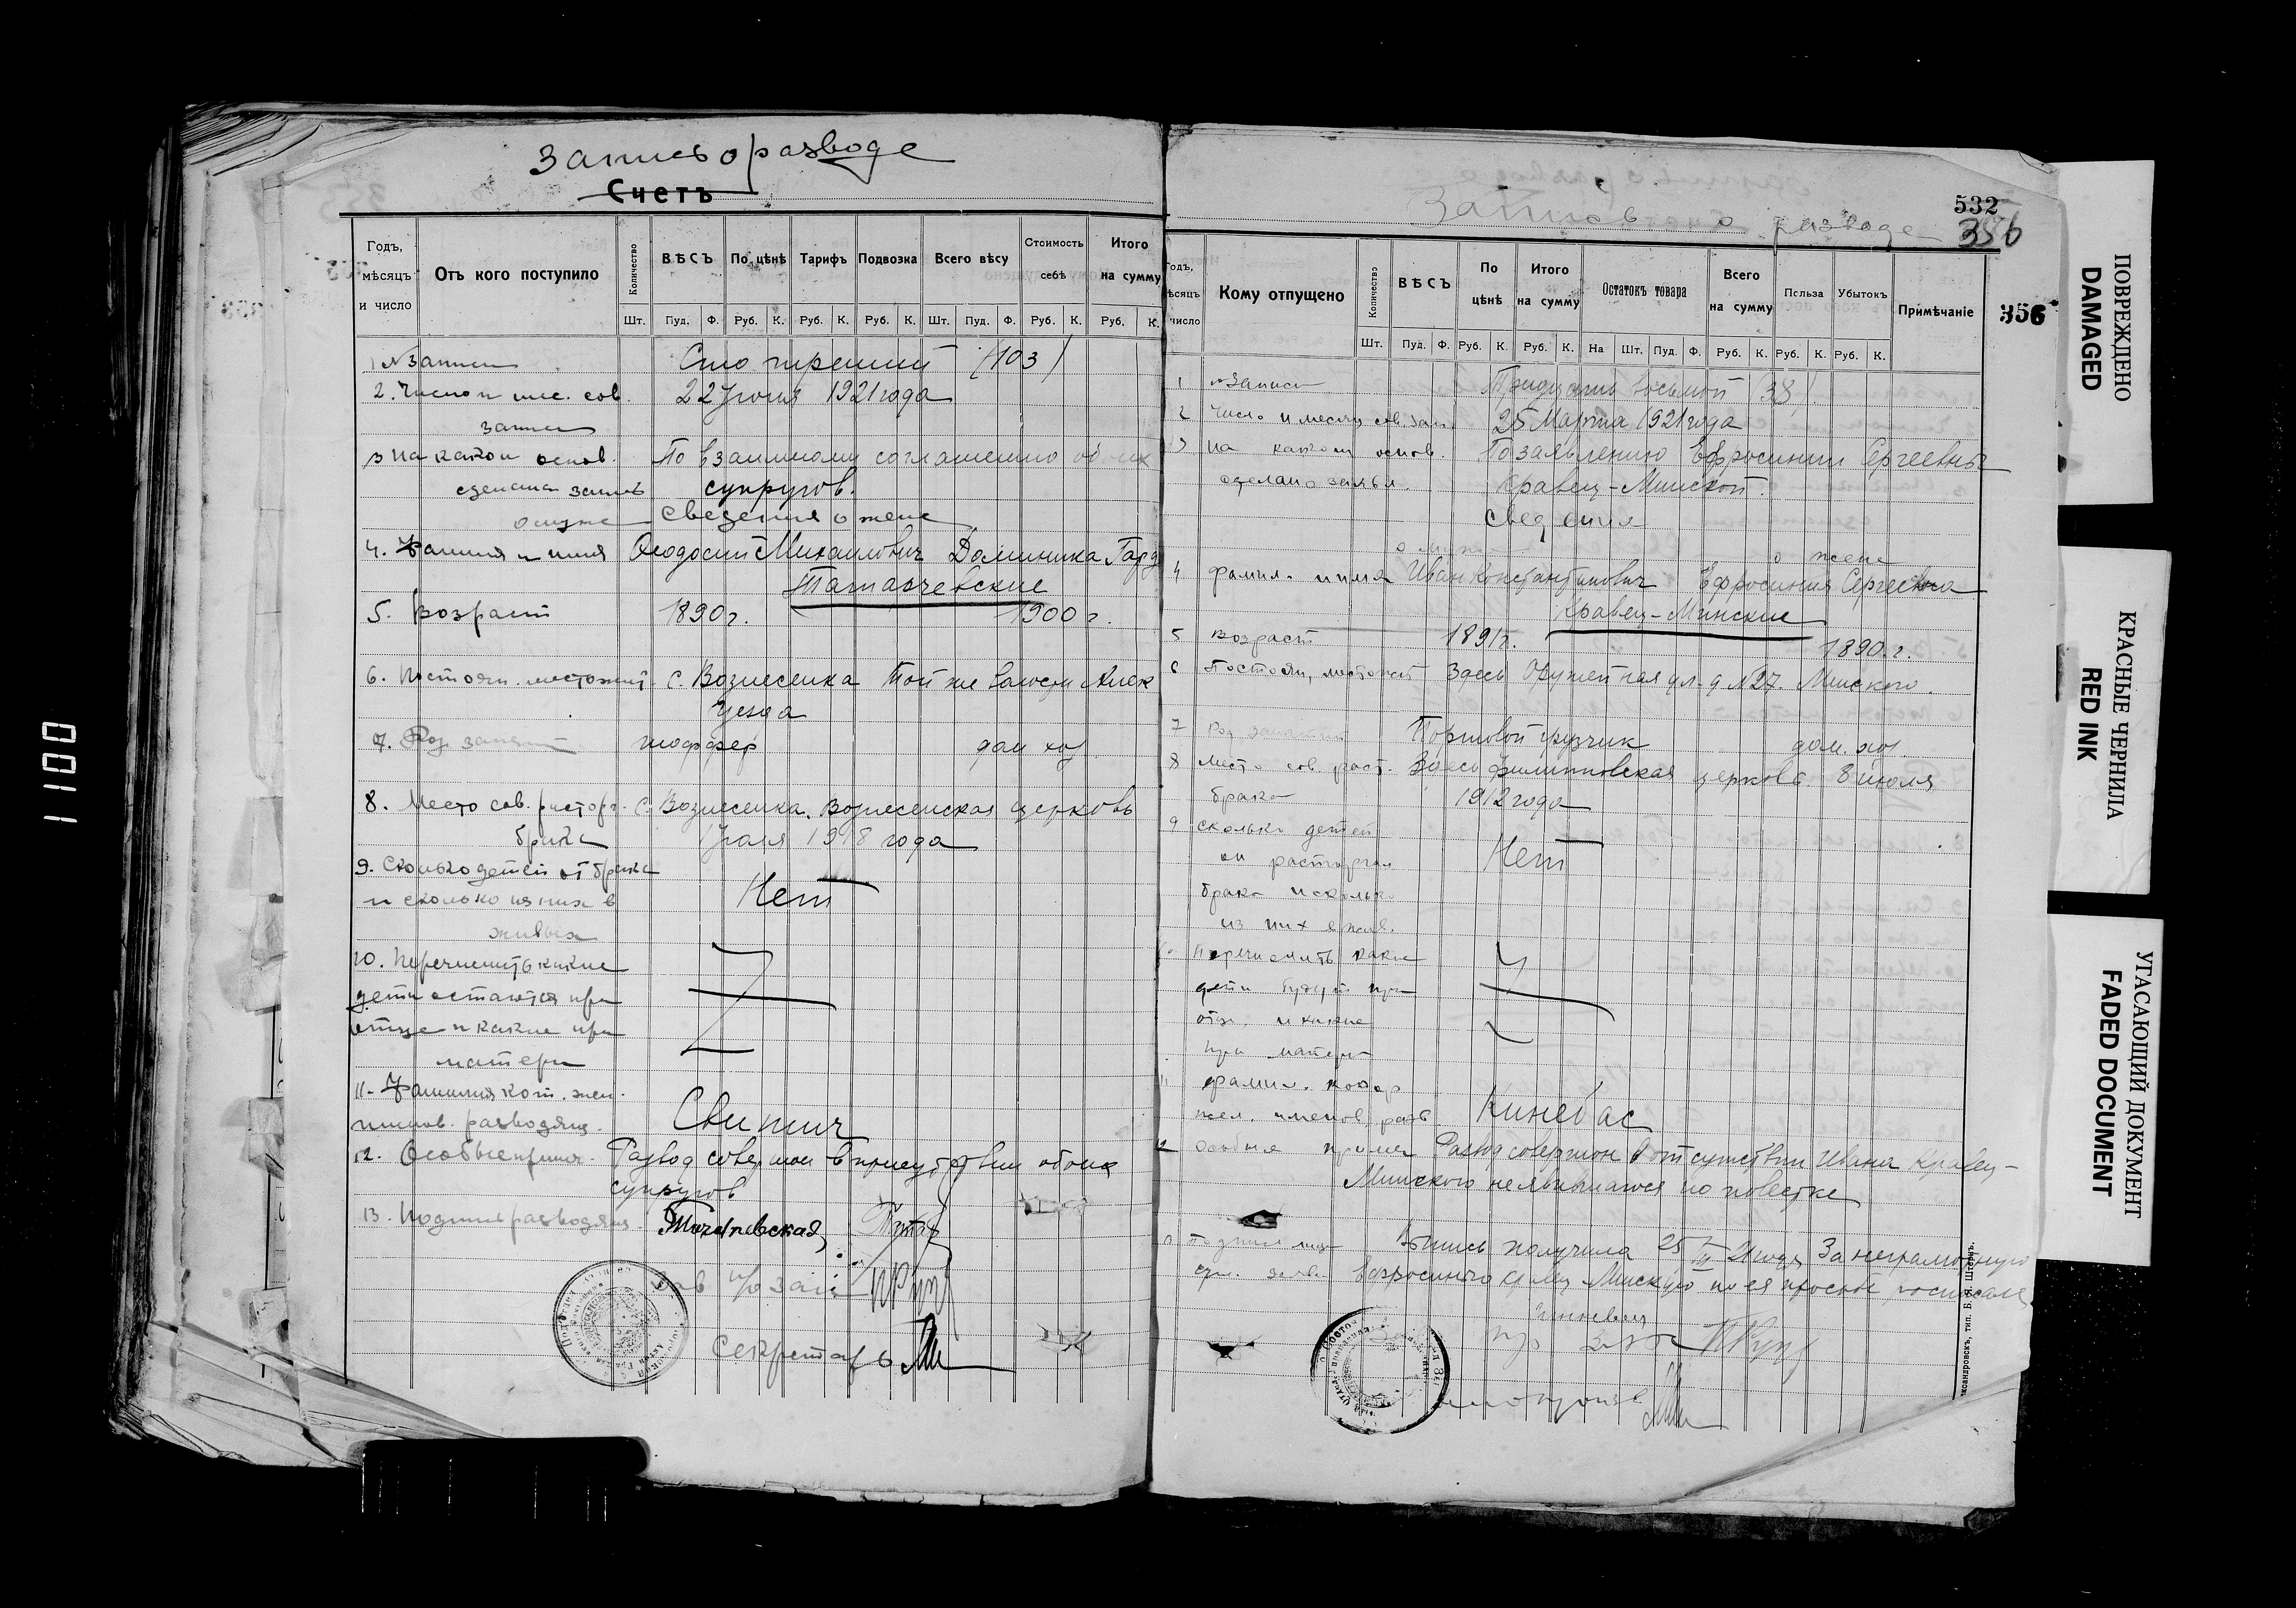 Запись о разводе
Счетъ
Годъ, мѣсяцъ и число
Отъ кого поступило
Количество
ВѢСЪ
По цѣнѣ
Тарифъ
Подвозка
Всего вѣсу
Стоимость себѣ
Итого на сумму
Шт. Пуд. Ф. Руб. К. Руб. К. Руб. К. Шт. Пуд. Ф. Руб. К. Руб. К.
1 № записи Сто третий (103)
2. Число и мес. сов. 22 Июня 1921 года
записи
3 На каком основ. По взаимному соглашению обоих
сделана запись супругов.
о муже Сведения о жене
4. Фамилия и имя Феодосий Михаилович Доминика
Татарчевские
5. Возраст 1890 г. 1900 г.
6. Постоян. местожит. с. Вознесенка Той же волости Алек
Уезда
7. Род занятий шоффер дом хоз
8. Место сов. расторг. с. Вознесенка. Вознесенская церковь
брака 1918 года
9. Сколько детей от брака
Нет
и сколько из них в
живых
10. Перечислить какие
дети остаются при
отце и какие при
матери
11. Фамилия кот. жел.
именов. разводящ. Свитич
12. Особые примеч. Развод совершон в присутствии обоих
супругов
13. Подписи разводящ.
Зав п/о зап
Секретарь
Записъ о разводе
532
356
356
Годъ, мѣсяцъ число
Кому отпущено
Количество
ВѢСЪ
По цѣнѣ
Итого на сумму
Остатокъ товара
Всего на сумму
Польза
Убытокъ
Примѣчаніе
Шт. Пуд. Ф. Руб. К. Руб. К. На Шт. Пуд. Ф. Руб. К. Руб. К. Руб. К.
1 № Записи Тридцать восьмой (38)
2 Число и месяц сов. зап. 25 Марта 1921 года
3 на каком основ. По заявлению Ефросинии Сергеевны
сделано заявл. Кравец-Минской.
Сведения
о муже о жене
4 фамил. и имя Иван Константинович Ефросиния Сергеевна
Кравец-Минские
5 Возраст 1891 г. 1890. г.
6 Постоян, местожит Здесь Оружейная ул. д №27. Минского.
7 Род занятий Портовой грузчик дом. хоз.
8 Место сов. раст. Здесь Филипповская церковь. 8 июля
брака 1912 года
9 сколько детей
Нет
от расторгн
брака и сколько
из них в жив.
10 Перечислить какие
дети будут при
отц. и какие
при матери
11 фамил. котор
жел. именов. разв. Кинебас
12 особые примеч Развод совершон в отсутствии Ивана Кравец-
Минского неявившагося по повестке
13 Подписи лиц Выпись получила 25/III 21 года За неграмотную
Ефросинию Кравец Минскую по ея просьбе росписался
Александровскъ, тип. Б. Я. Штернъ.
ПОВРЕЖДЕНО
DAMAGED
КРАСНЫЕ ЧЕРНИЛА
RED INK
УГАСАЮЩИЙ ДОКУМЕНТ
FADED DOCUMENT
1100